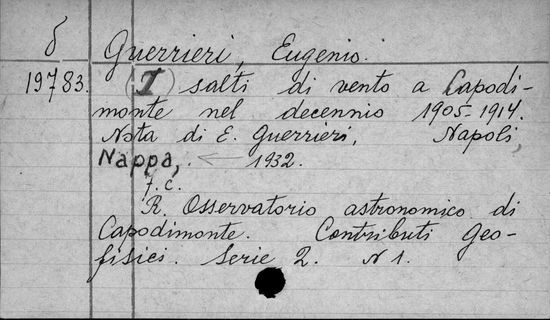 δ Guerrieri, Eugenio.
19783. (I) salti di vento a Capodi-
monte nel decennio 1905-1914.
Nota di E. Guerrieri, Napoli,
Nappa, ← 1932.
f. c.
R. Osservatorio astronomico di
Capodimonte. Contributi geo-
fisici. Serie 2. N 1.